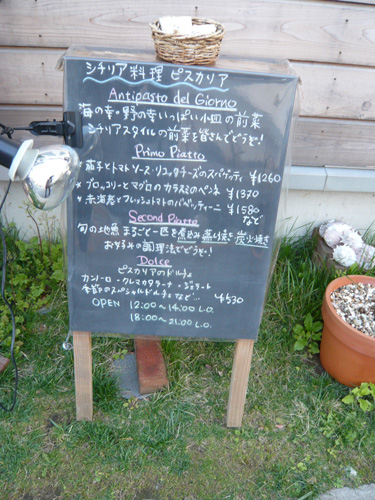 シチリア料理 ピスカリア
Antipasto del Giorno
海の幸・野の幸いっぱい小皿の前菜
シチリアスタイルの前菜を皆さんでどうぞ!
Primo Piatto
茄子とトマトソース・リコッタチーズのスパゲッティ ¥1260
ブロッコリーとマグロのカラスミのペンネ ¥1370
赤海老とフレッシュトマトのパッパルディーニ ¥1580
など
Second Piatto
旬の地魚 まるごと一匹を煮込み 蒸し焼き 炭火焼き
お好みの調理法でどうぞ!
Dolce
ピスカリアのドルチェ
カンノーロ・クレマカタラーナ・ジェラート
季節のスペシャルドルチェなど... ¥530
OPEN 12:00~14:00 L.O.
18:00~21:00 L.O.